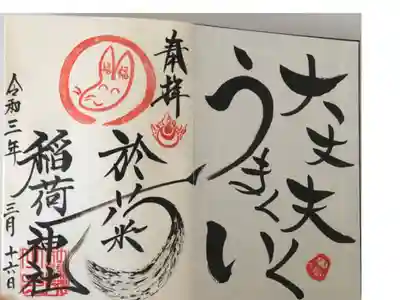 大丈夫
うまくいく
奉拝
於菊
稲荷神社
令和三年 三月十六日